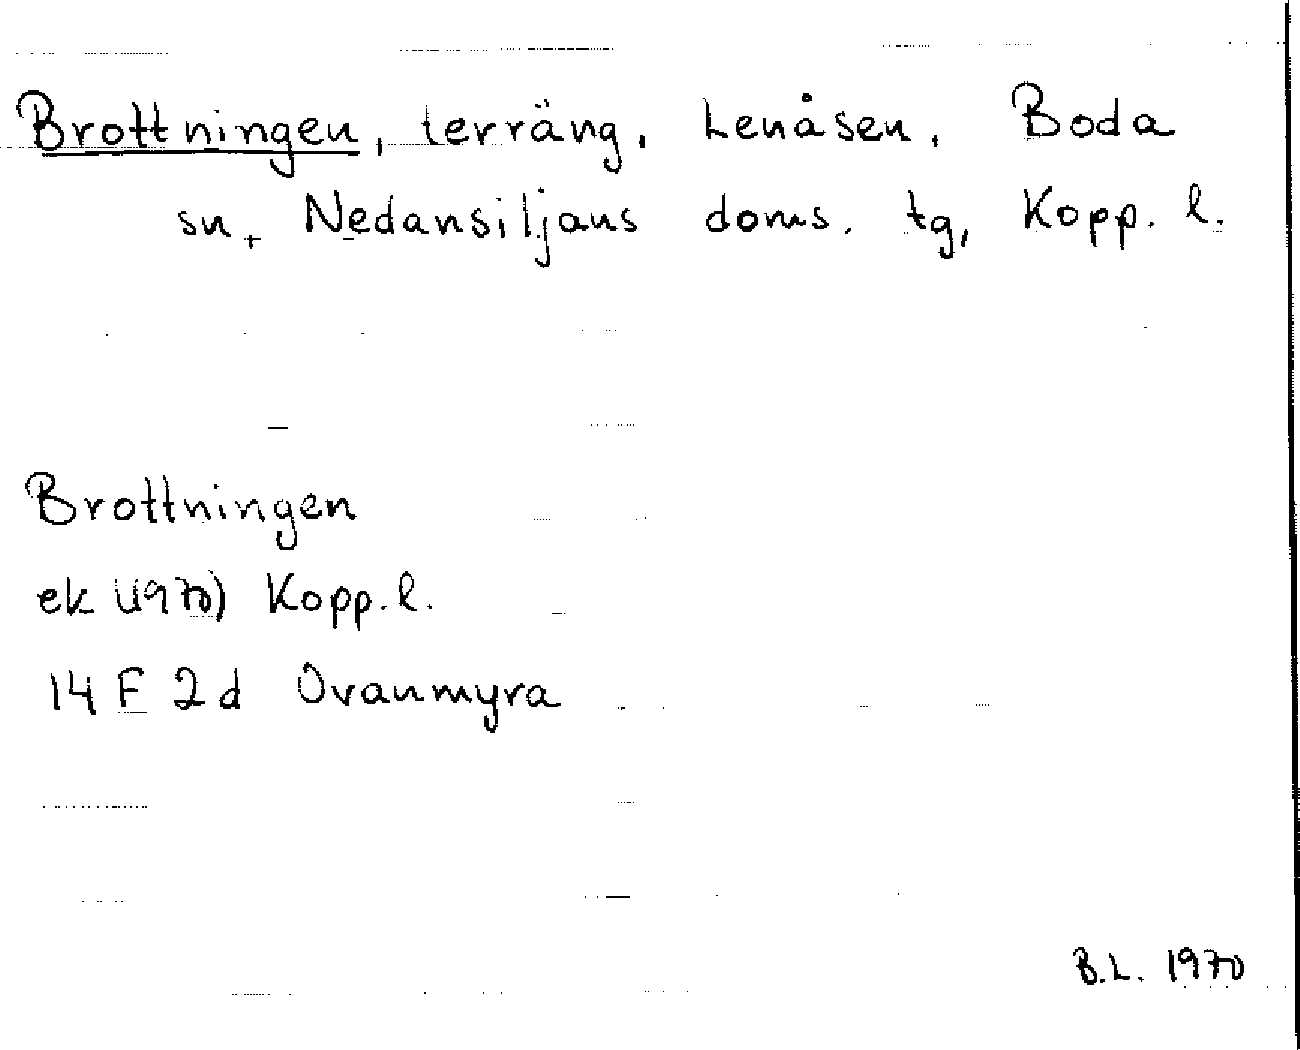 Brottningen, terräng, Lenåsen, Boda
sn, Nedansiljans doms. tg, Kopp. l.
Brottningen
ek (1970) Kopp. l.
14 F 2 d Ovanmyra
B.L. 1970